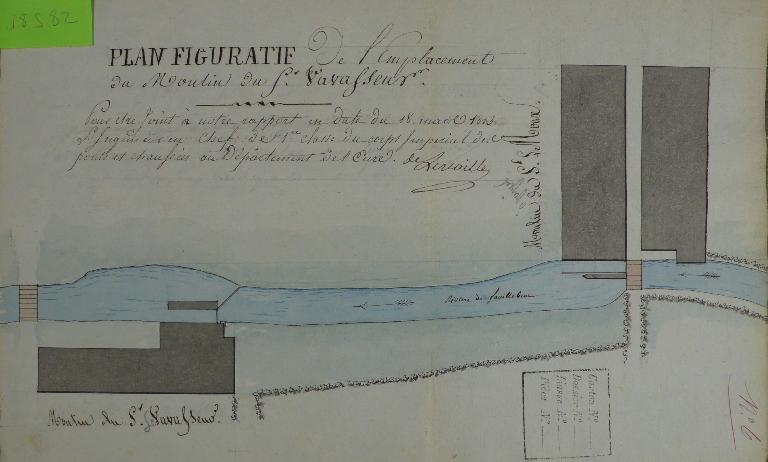 18582
PLAN FIGURATIF De l'Emplacement
du Moulin du S.r Vavasseur.
Pour etre Joint à notre rapport en date du 18 mars
L'Ingenieur en Chef de 1.ere classe du corps Imperial des
ponts et chaussées au Département de l'Eure.
Moulin du S.r
Riviere de
Moulin du S.r Vavasseur.
Carton N.o
Dossier N.o
Liasse N.o
Pièce N.o
N.o 6